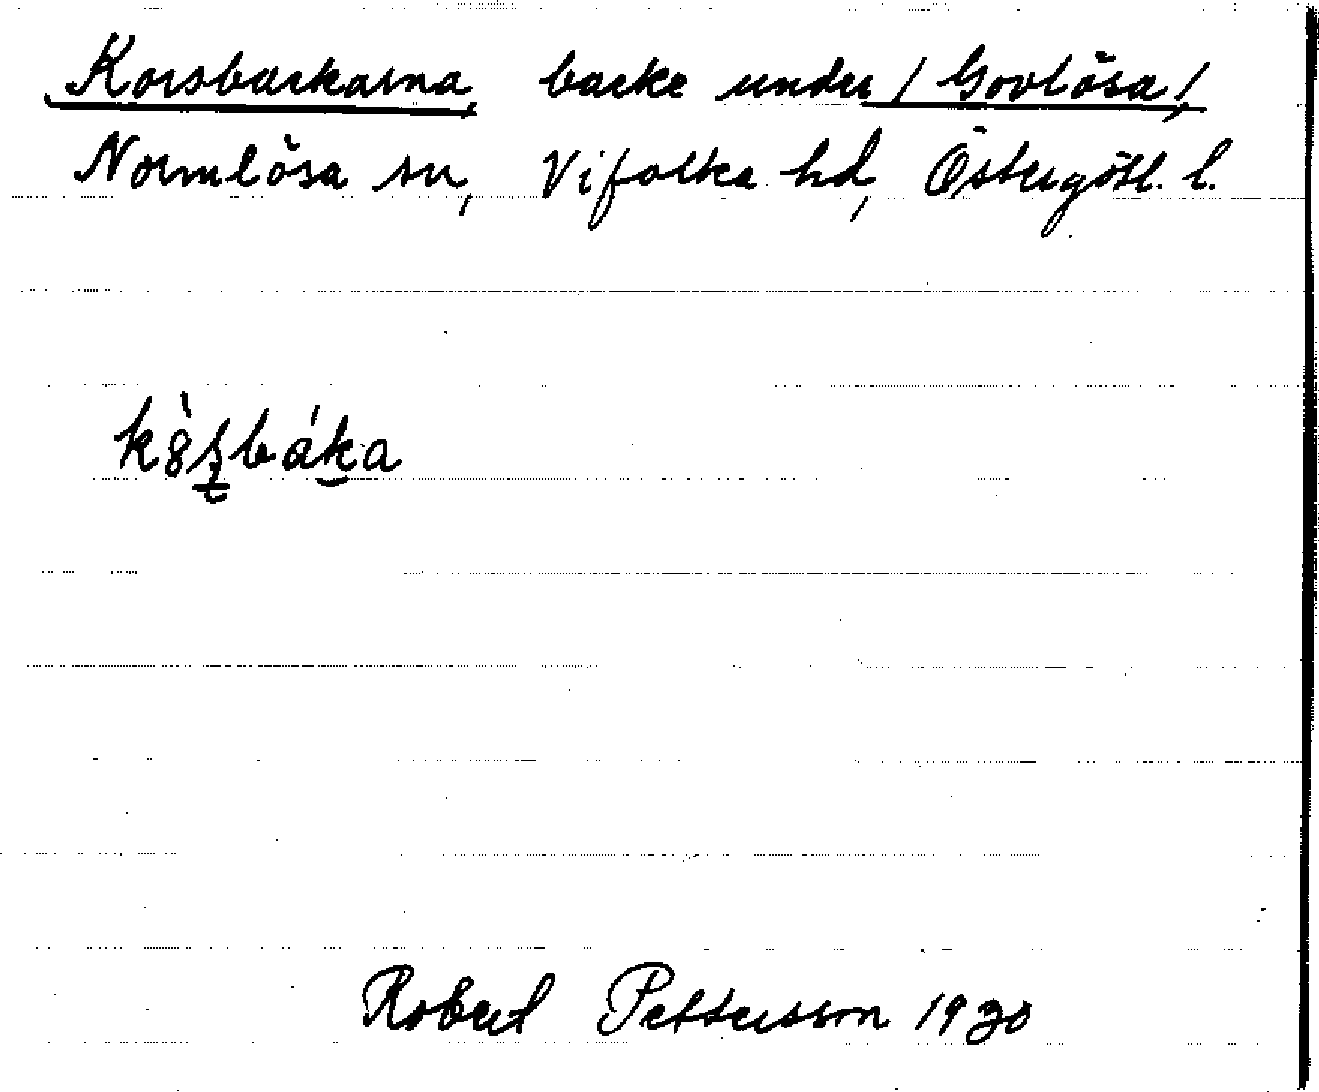 Korsbackarna, backe under / Govlösa /,
Normlösa sn, Vifolka hd, Östergötl. l.
Robert Pettersson 1930